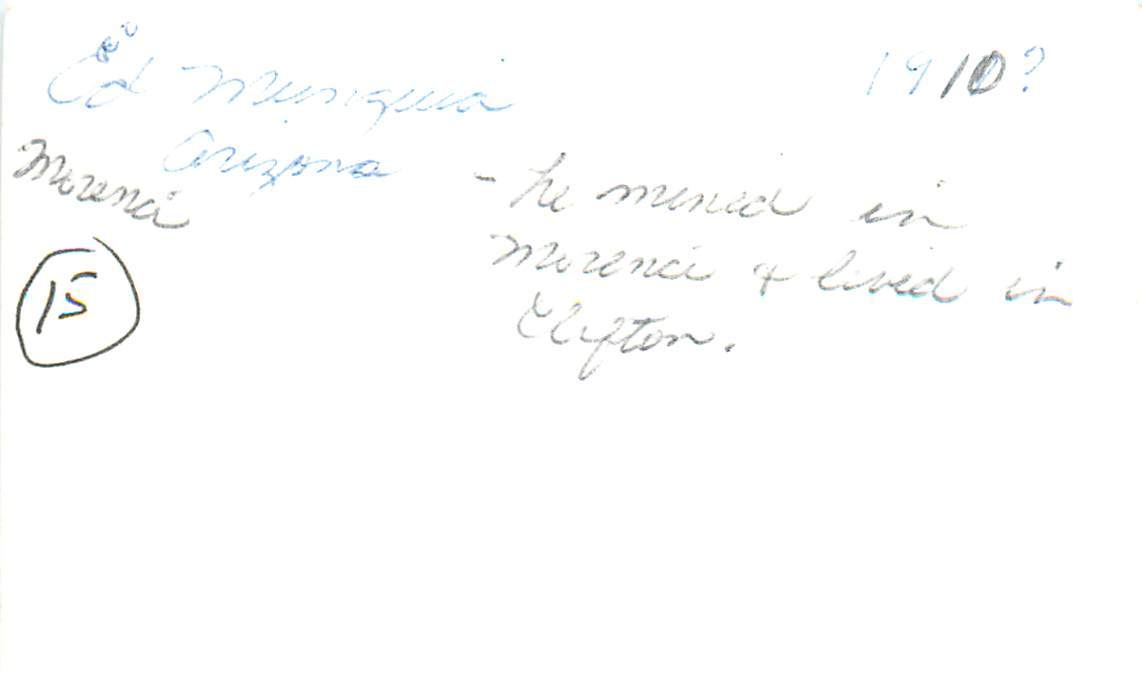 Ed Munguia 1910?
Morenci Arizona - he mined in
Morenci & lived in
Clifton.
15